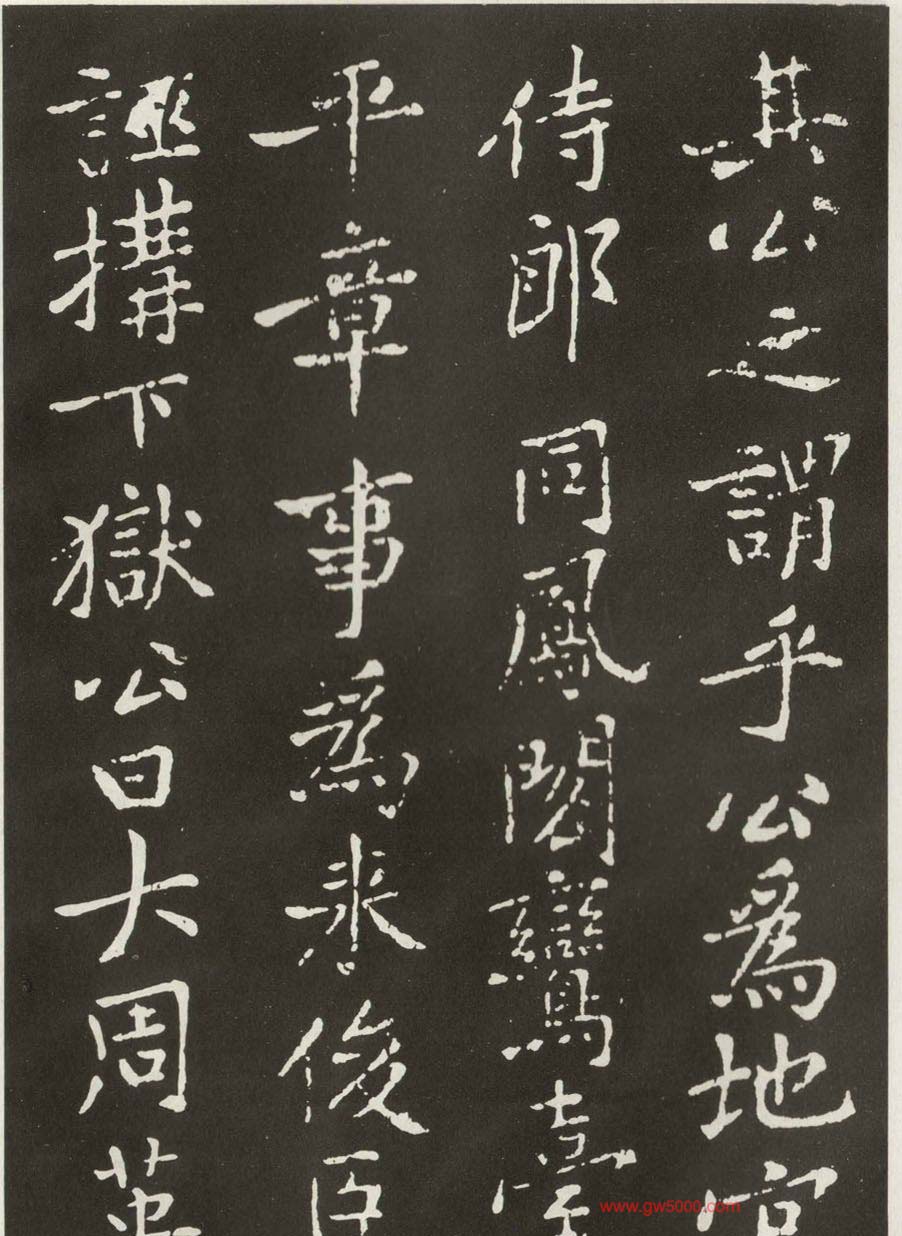 其公之謂乎公爲地官
侍郎同鳳閣鸞臺
平章事爲来俊臣
誣搆下獄公曰大周革
www.gw5000.com